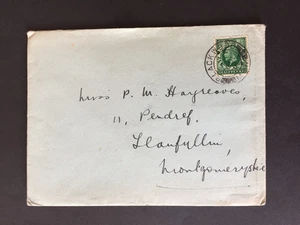 Miss P. M. Hargreaves,
11, Pendref,
Llanfyllin,
Montgomeryshire